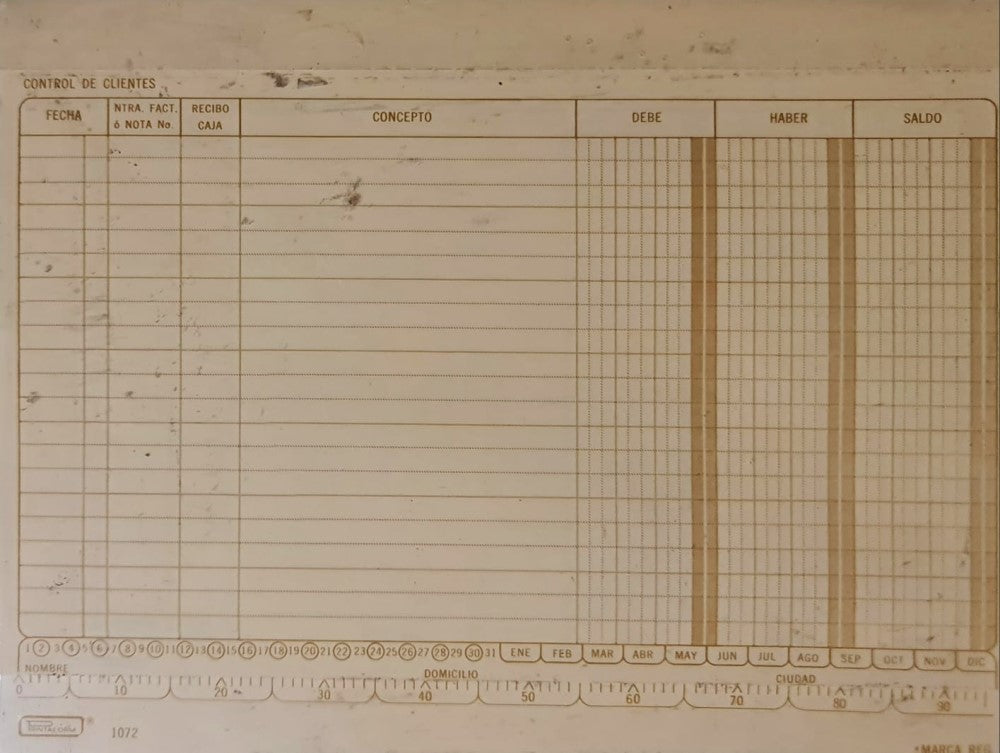 CONTROL DE CLIENTES
FECHA NTRA. FACT. ó NOTA No. RECIBO CAJA CONCEPTO DEBE HABER SALDO
1 2 3 4 5 6 7 8 9 10 11 12 13 14 15 16 17 18 19 20 21 22 23 24 25 26 27 28 29 30 31 ENE FEB MAR ABR MAY JUN JUL AGO SEP OCT NOV DIC
NOMBRE DOMICILIO CIUDAD
0 10 20 30 40 50 60 70 80 90
PRINTAFORM ® 1072
*MARCA REG.